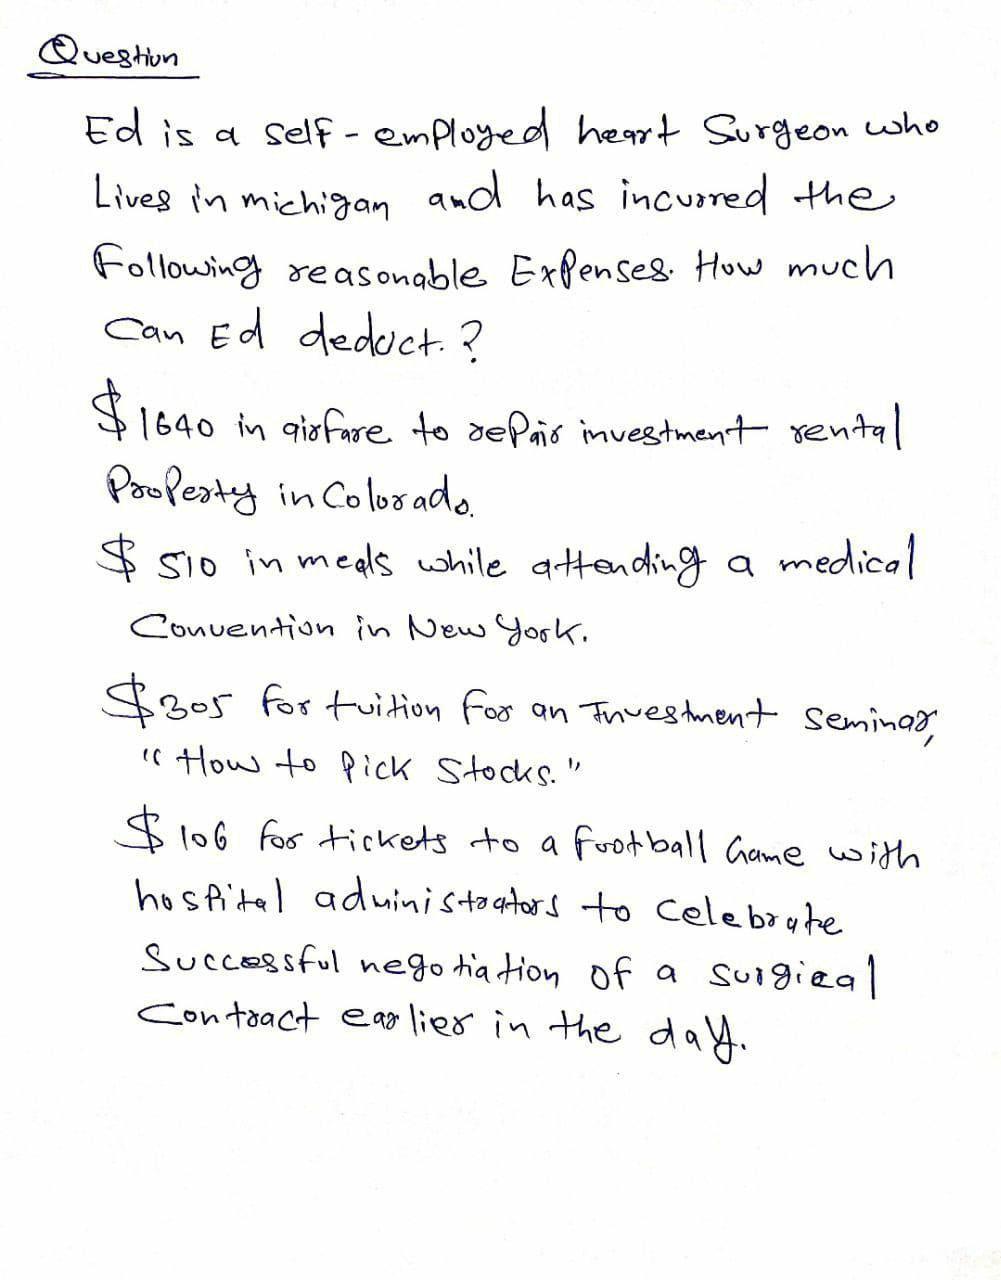 Question
Ed is a self-employed heart Surgeon who
Lives in michigan and has incurred the
Following reasonable Expenses. How much
Can Ed deduct.?
$1640 in airfare to repair investment rental
Property in Colorado.
$510 in meals while attending a medical
Convention in New York.
$305 for tuition for an Investment seminar,
"How to Pick Stocks."
$106 for tickets to a football Game with
hospital administrators to Celebrate
Successful negotiation of a surgical
Contract earlier in the day.